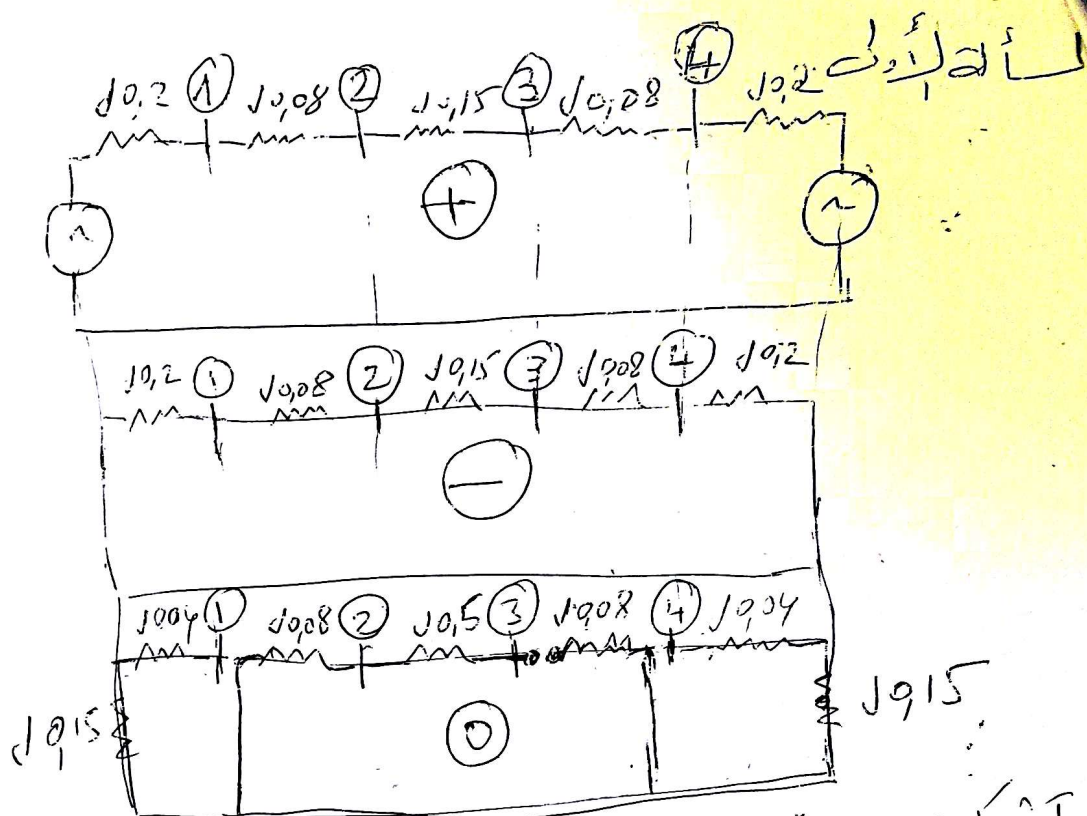 لمسألة الأولى
J0,2 ① J0,08 ② J0,15 ③ J0,08 ④ J0,2
~ + ~
J0,2 ① J0,08 ② J0,15 ③ J0,08 ④ J0,2
−
J004 ① J0,08 ② J0,5 ③ J0,08 ④ J0,04
J0,15 0 J0,15